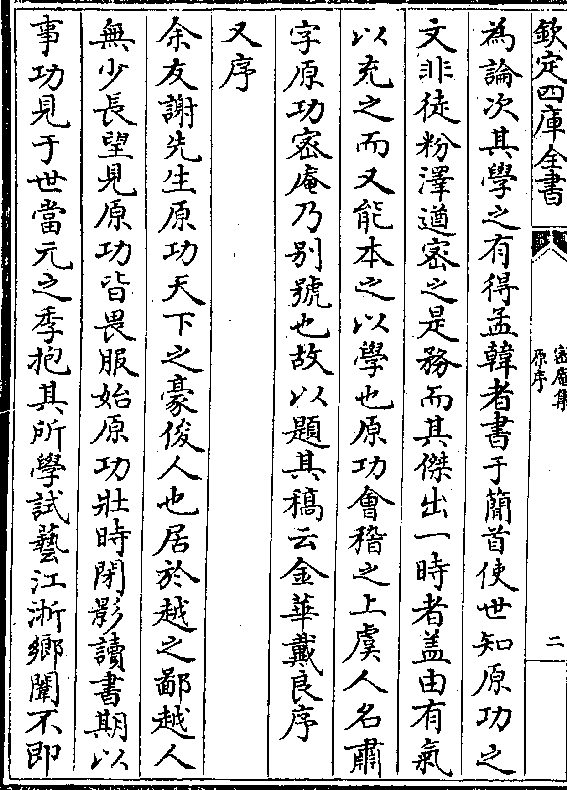 欽定四庫全書
密庵集
原序
二
為論次其學之有得孟韓者書于簡首使世知原功之
文非徒粉澤遒密之是務而其傑出一時者蓋由有氣
以充之而又能本之以學也原功會稽之上虞人名肅
字原功密庵乃别號也故以題其稿云金華戴良序
又序
余友謝先生原功天下之豪俊人也居於越之鄙越人
無少長望見原功皆畏服始原功壯時閉影讀書期以
事功見于世當元之季抱其所學試藝江浙鄉闈不即